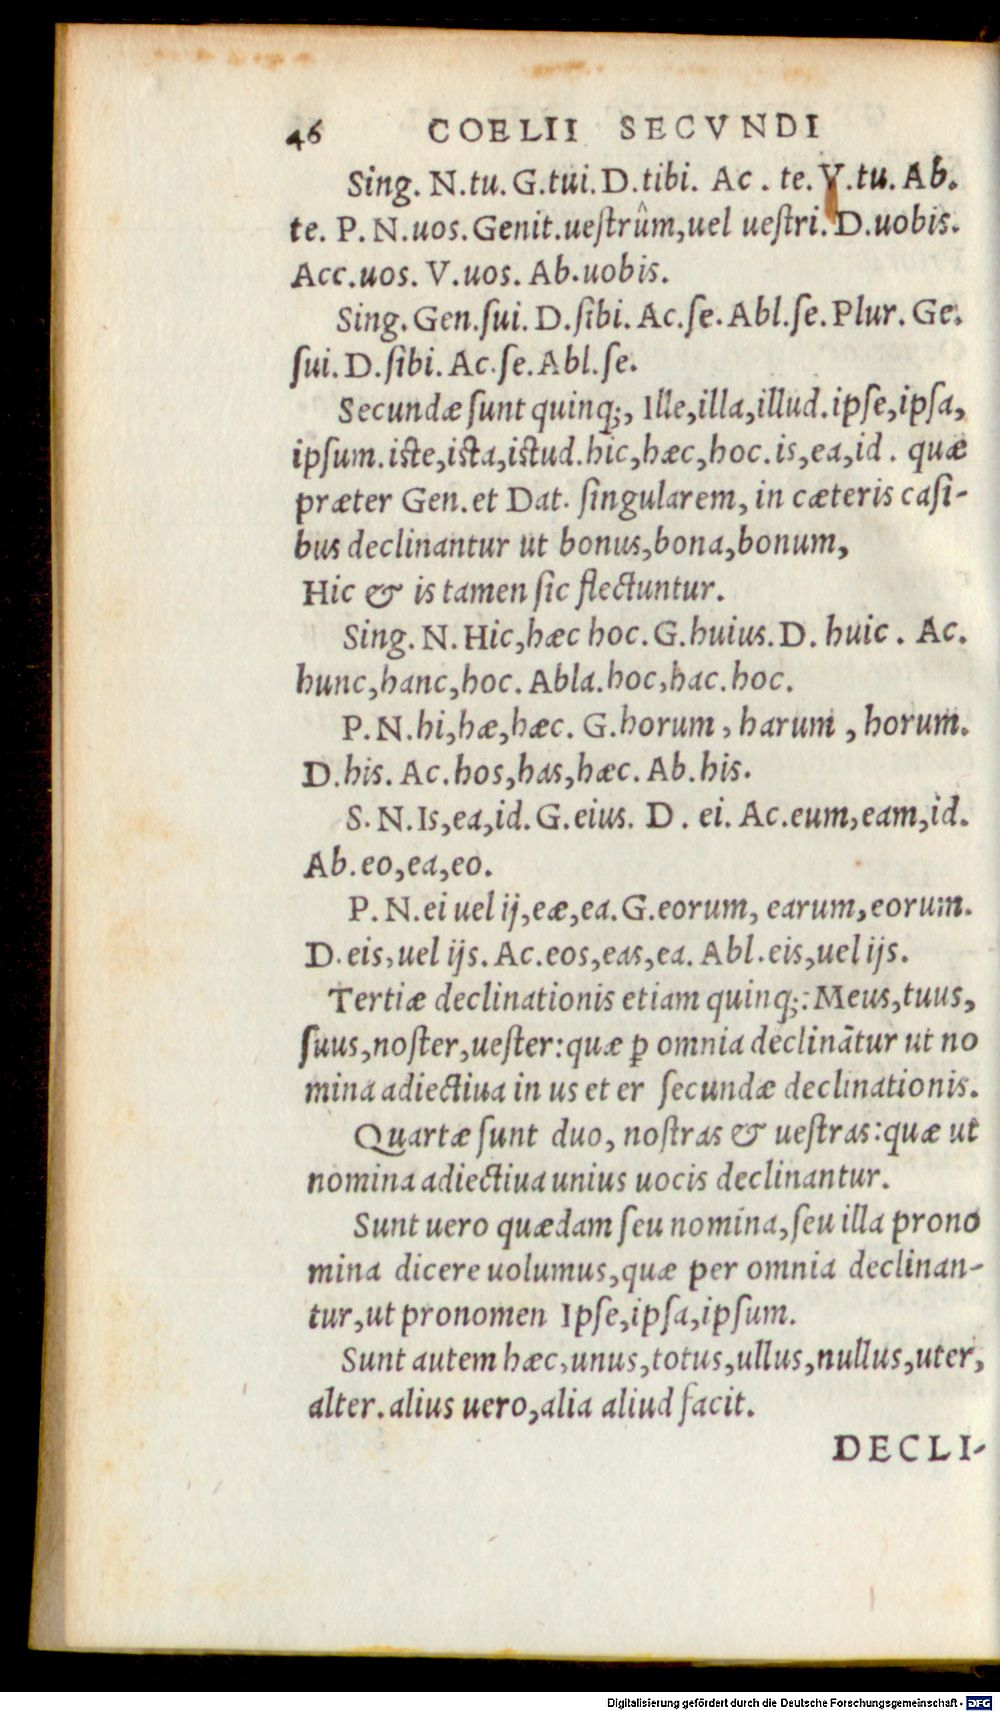 46 COELII SECVNDI
Sing. N.tu. G.tui. D.tibi. Ac . te. V.tu. Ab.
te. P. N.uos. Genit.ueſtrûm,uel ueſtri. D.uobis.
Acc.uos. V.uos. Ab.uobis.
Sing. Gen.ſui. D.ſibi. Ac.ſe. Abl.ſe. Plur. Ge.
ſui. D.ſibi. Ac.ſe. Abl.ſe.
Secundæ ſunt quinq;, Ille,illa,illud.ipſe,ipſa,
ipſum.iſte,iſta,iſtud.hic,hæc,hoc.is,ea,id . quæ
præter Gen.et Dat. ſingularem, in cæteris caſi-
bus declinantur ut bonus,bona,bonum,
Hic & is tamen ſic flectuntur.
Sing. N. Hic,hæc hoc. G.huius. D. huic . Ac.
hunc,hanc,hoc. Abla.hoc,hac.hoc.
P. N.hi,hæ,hæc. G.horum , harum , horum.
D.his. Ac.hos,has,hæc. Ab.his.
S. N. Is,ea,id. G.eius. D . ei. Ac.eum,eam,id.
Ab.eo,ea,eo.
P. N.ei uel ij,eæ,ea. G.eorum, earum,eorum.
D.eis,uel ijs. Ac.eos,eas,ea. Abl.eis,uel ijs.
Tertiæ declinationis etiam quinq;: Meus,tuus,
ſuus,noſter,ueſter:quæ ꝑ omnia declinātur ut no
mina adiectiua in us et er ſecundæ declinationis.
Quartæ ſunt duo, noſtras & ueſtras:quæ ut
nomina adiectiua unius uocis declinantur.
Sunt uero quædam ſeu nomina,ſeu illa prono
mina dicere uolumus,quæ per omnia declinan-
tur,ut pronomen Ipſe,ipſa,ipſum.
Sunt autem hæc,unus,totus,ullus,nullus,uter,
alter.alius uero,alia aliud facit.
DECLI-
Digitalisierung gefördert durch die Deutsche Forschungsgemeinschaft - DFG